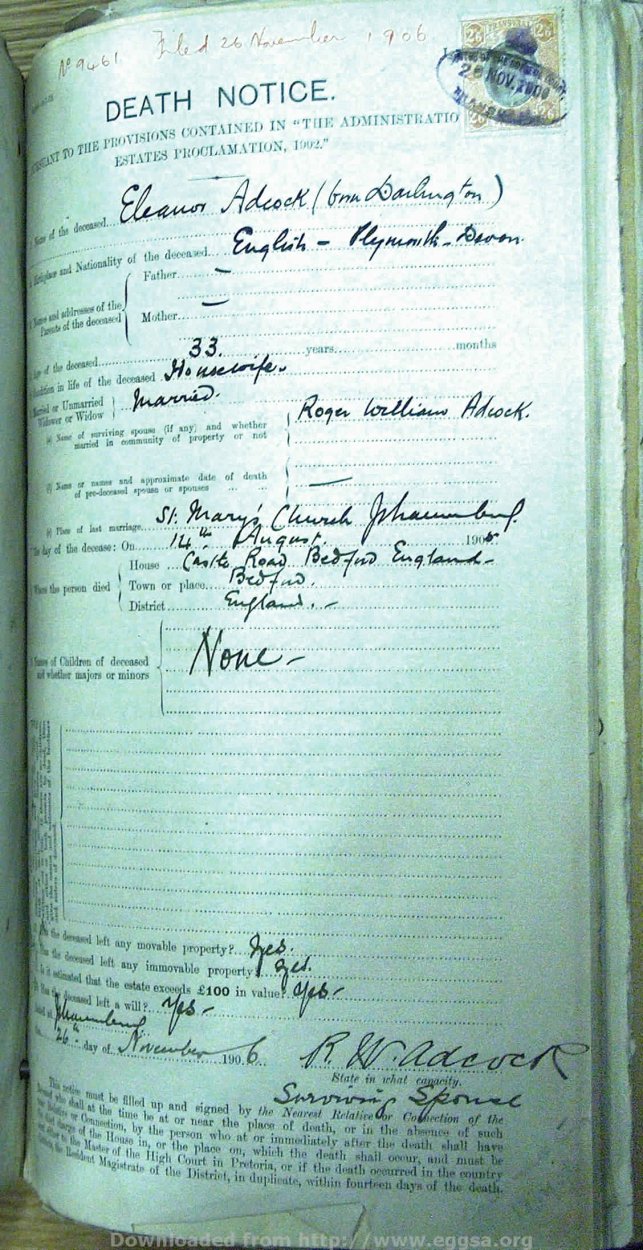 No 9461 Filed 26 November 1906
TRANSVAAL
2/6 2/6
26 NOV. 1906
DEATH NOTICE.
TO THE PROVISIONS CONTAINED IN "THE ADMINISTRATIO
ESTATES PROCLAMATION, 1902."
Name of the deceased Eleanor Adcock (born Darlington)
Birthplace and Nationality of the deceased English - Plymouth - Devon
Names and addresses of the Parents of the deceased
Father —
Mother —
Age of the deceased 33 years months
Condition in life of the deceased Housewife.
Married or Unmarried
Widower or Widow Married.
(a) Name of surviving spouse (if any) and whether married in community of property or not
Roger William Adcock.
(b) Name or names and approximate date of death of pre-deceased spouse or spouses —
(c) Place of last marriage St. Mary's Church Johannesburg
The day of the decease: On 14th August. 190
Where the person died
House Castle Road Bedford England -
Town or place Bedford.
District England. -
Names of Children of deceased
and whether majors or minors
None -
the deceased left any movable property? Yes.
the deceased left any immovable property? Yes.
Is it estimated that the estate exceeds £100 in value? Yes -
Has the deceased left a will? Yes -
Dated at Johannesburg
26th day of November 1906. R. W. Adcock
State in what capacity.
Surviving Spouse
This notice must be filled up and signed by the Nearest Relative or Connection of the
who shall at the time be at or near the place of death, or in the absence of such
Relative or Connection, by the person who at or immediately after the death shall have
charge of the House in, or the place on, which the death shall occur, and must be
to the Master of the High Court in Pretoria, or if the death occurred in the country
the Resident Magistrate of the District, in duplicate, within fourteen days of the death.
Downloaded from http://www.eggsa.org